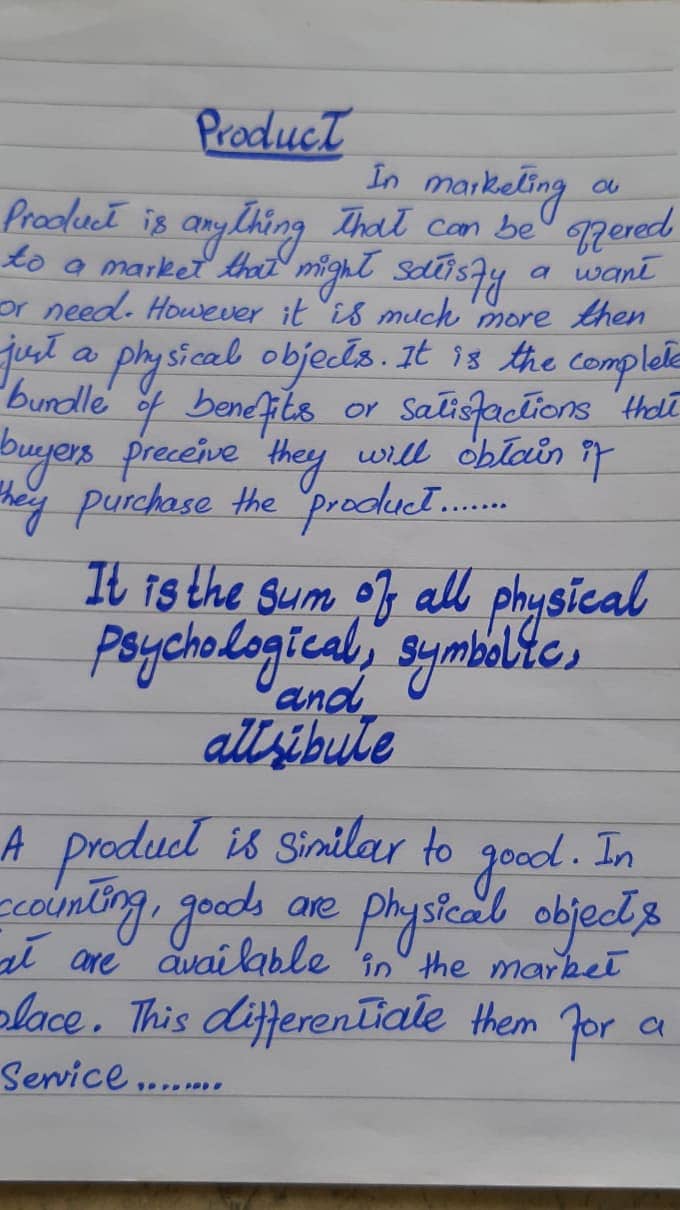 Product
In marketing a
Product is anything that can be offered
to a market that might satisfy a want
or need. However it is much more then
just a physical objects. It is the complete
bundle of benefits or satisfactions that
buyers preceive they will obtain if
they purchase the product.......
It is the sum of all physical
Psychological, symbolic,
and
attribute
A product is similar to good. In
ccounting, goods are physical objects
at are available in the market
place. This differentiate them for a
Service........